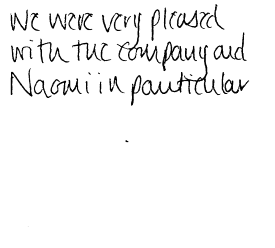 We were very pleased
with the company and
Naomi in particular